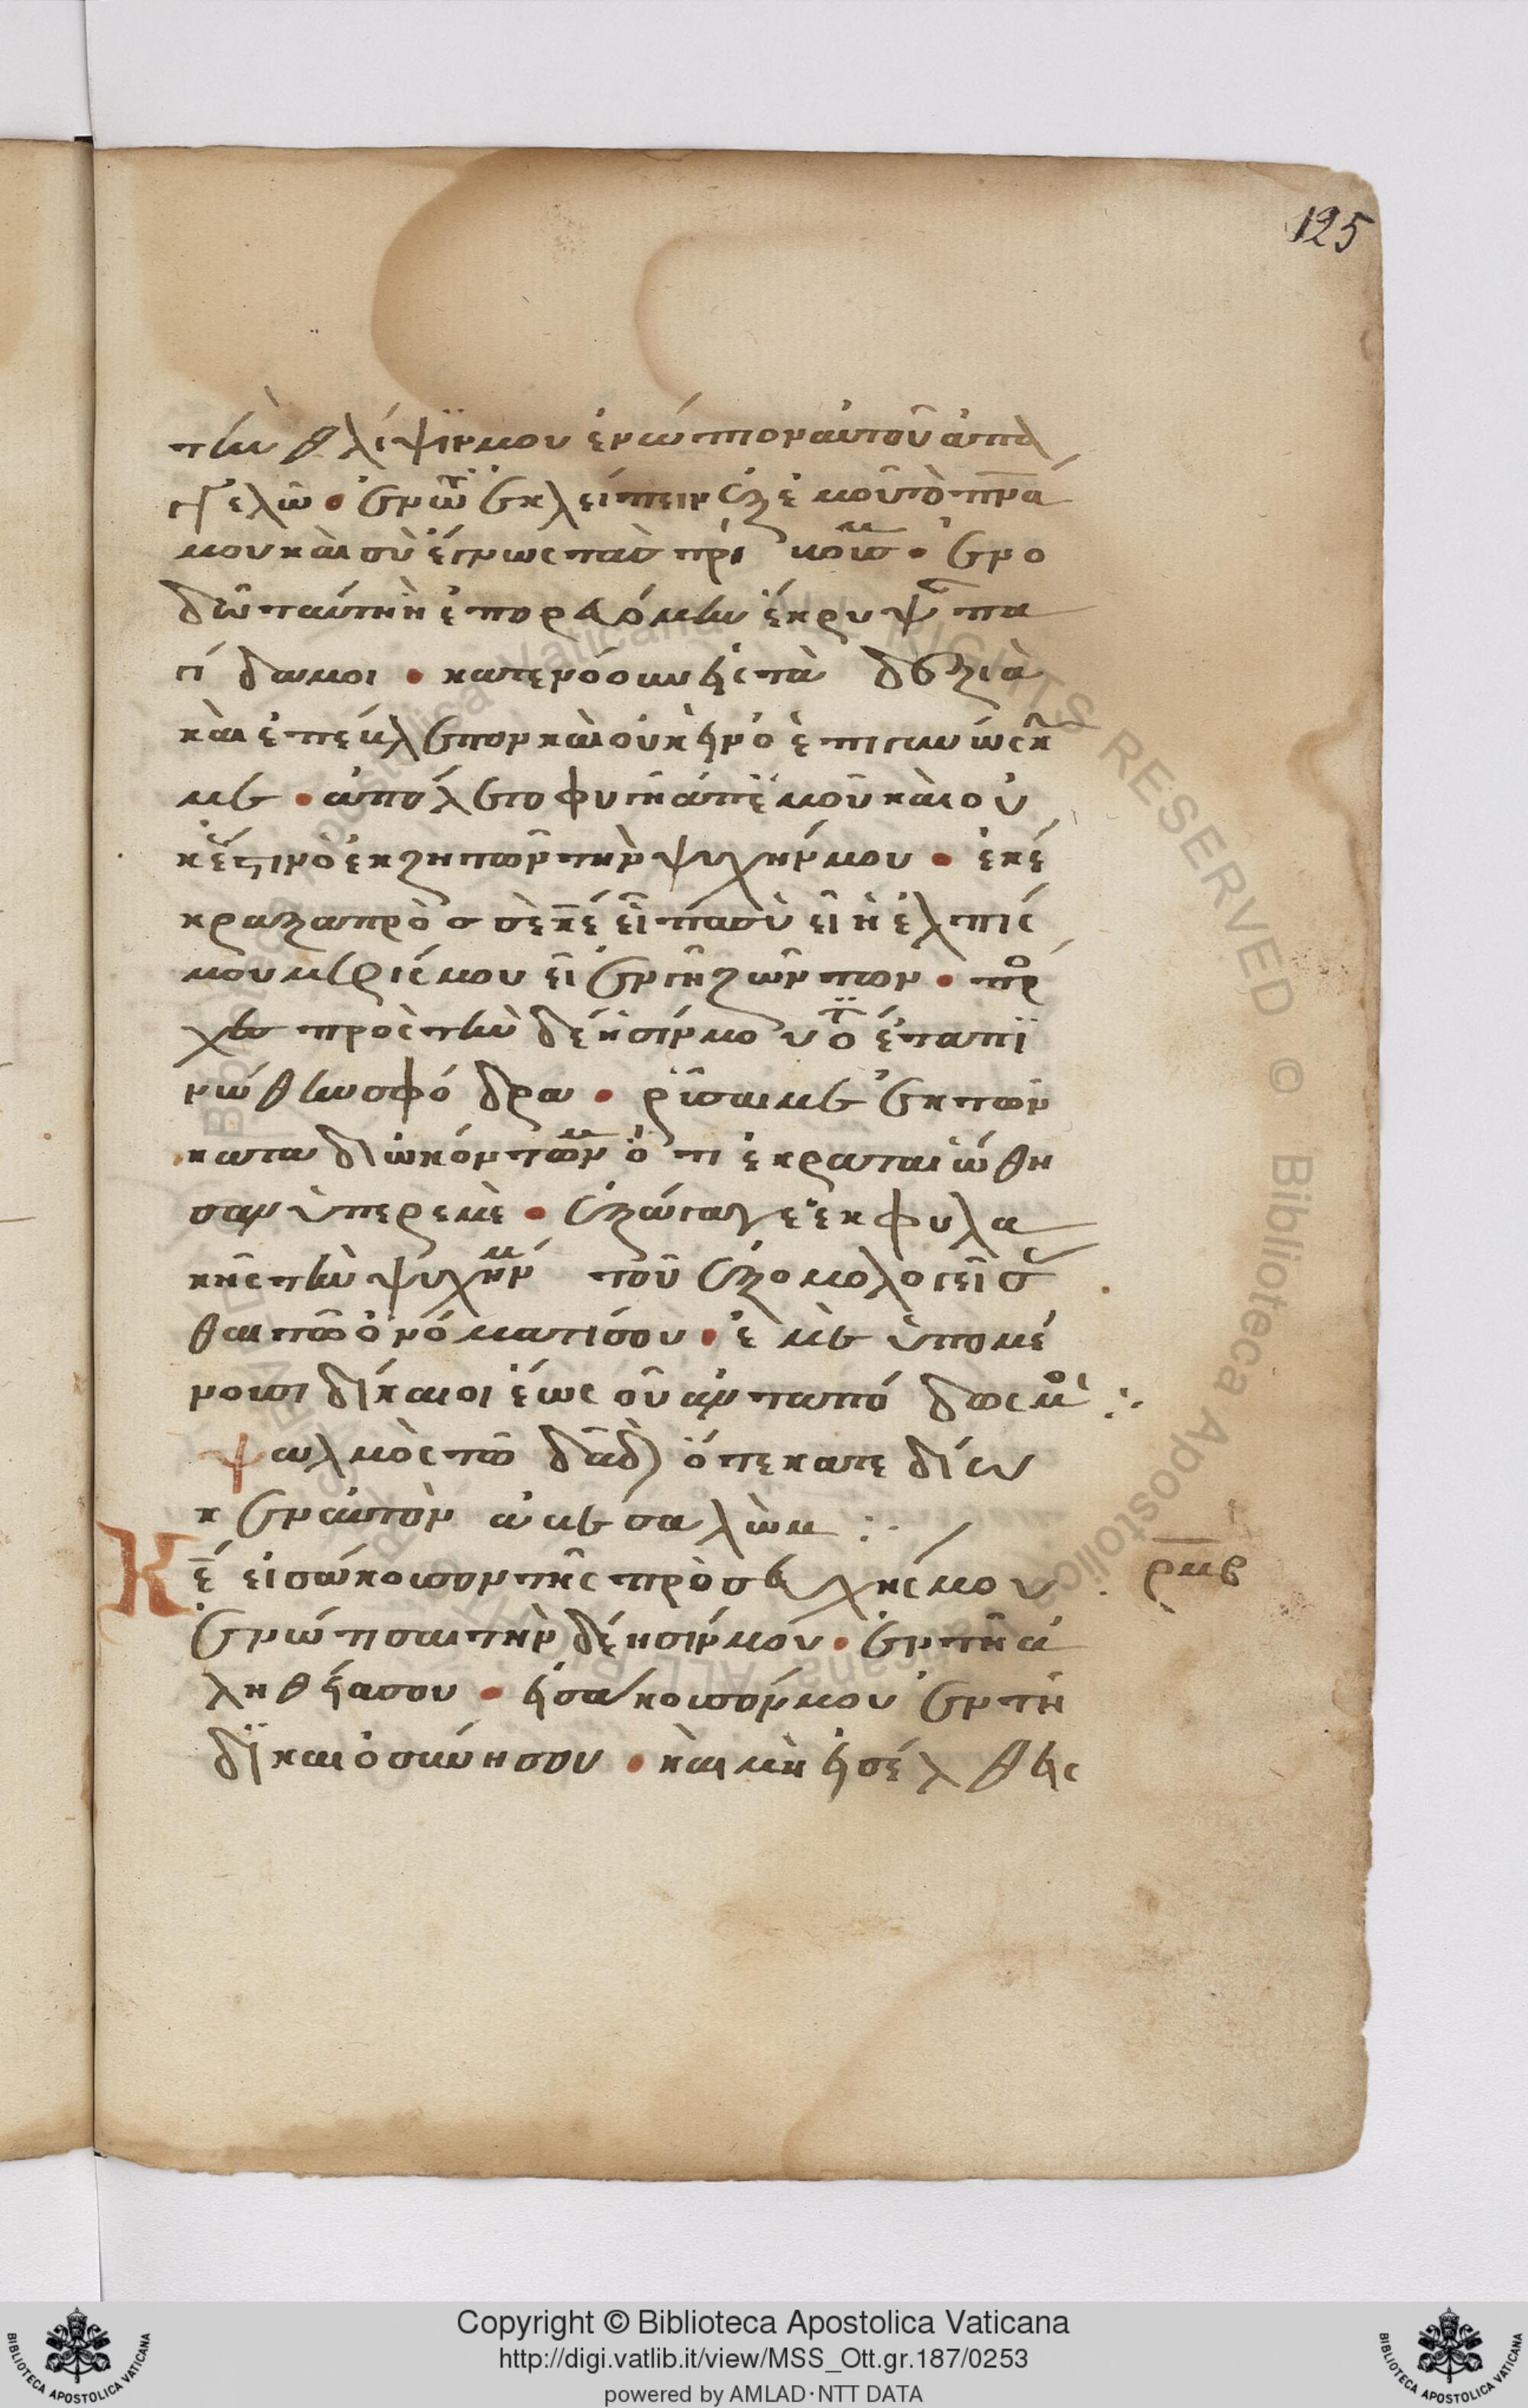 125
τὴν θλίψϊν μου ἐνώπιον αὐτοῦ ἀπα
γγελῶ · ἐν τῶ ἐκλείπειν ἐξ ἐμοῦ τὸ πνᾶ
μου καὶ σὺ ἔγνως τὰσ τρί μουσ · ἐν ο
δῶ ταύτη ἧ ἐπορευόμην ἔκρυψαν πα
γί δα μοι · κατενόουν εἰς τὰ δεξιὰ
καὶ ἐπέβλεπον καὶ οὐκ ἦν ὁ ἐπιγινώσκ
με · ἀπόλετο φυγὴ ἀπ ἐμοῦ καὶ οὐ
κ ἔστιν ὁ ἐκζητῶν τὴν ψυχήν μου · ἐκέ
κραξα πρὸσ σὲ κέ εἶπα σὺ εἶ ἡ ἐλπίς
μου μερίς μου εἶ ἐν γῆ ζώντων · πρό
χες πρὸς τὴν δέησίν μου ὅτι ἐταπϊ
νώθην σφόδρα · ρῦσαι με ἐκ τῶν
καταδιωκόντων μ ὅτι ἐκραταιώθη
σαν ὑπερ εμὲ · ἐξάγαγε ἐκ φυλα
κῆς τὴν ψυχήν μ τοῦ ἐξομολογεῖσ
θαι τῶ ὀνόματί σου · ἐμὲ ὑπομέ
νουσι δίκαιοι ἕως οὗ ἀνταπόδως μοὶ :·
ψαλμὸς τῶ δᾱδ ὅτε κατεδίω
κεν αὐτὸν ἀβεσαλὼμ :·
Κέ εἰσάκουσον τῆς πρὸσευχῆς μου
ρμβ
ἐνώτισαι τὴν δέησίν μου · ἐν τῆ ἀ
ληθείασου · εἰσάκουσόν μου ἐν τῆ
δϊκαιοσύνησου · καὶ μὴ εἰσέλθεις
Copyright © Biblioteca Apostolica Vaticana
http://digi.vatlib.it/view/MSS_Ott.gr.187/0253
powered by AMLAD·NTT DATA